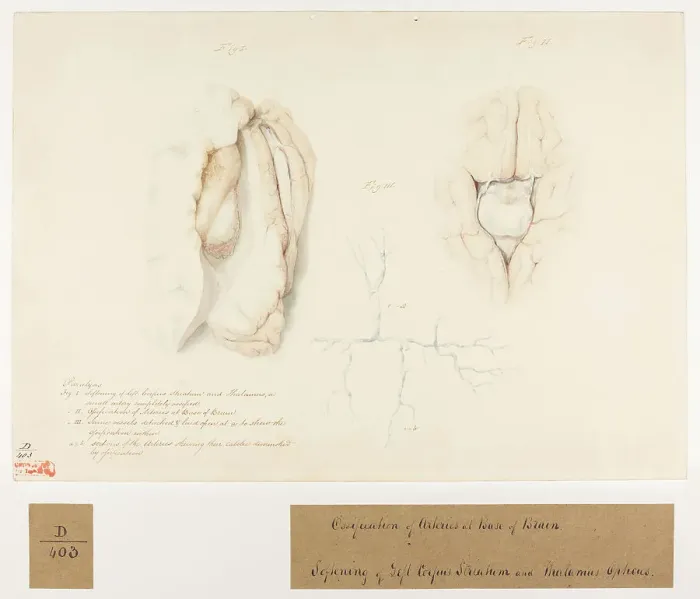 Fig. I.
Fig. II.
Fig. III.
Paralysis
Fig. I. Softening of left Corpus Striatum and Thalamus, a
small artery completely ossified.
II. Ossification of Arteries at Base of Brain
III. Same vessels detached & laid open at a to shew the
Ossification within
a. b. sections of the Arteries shewing their calibre diminished
by ossification
D
403
D
403
Ossification of Arteries at Base of Brain
Softening of Left Corpus Striatum and Thalamus Opticus.